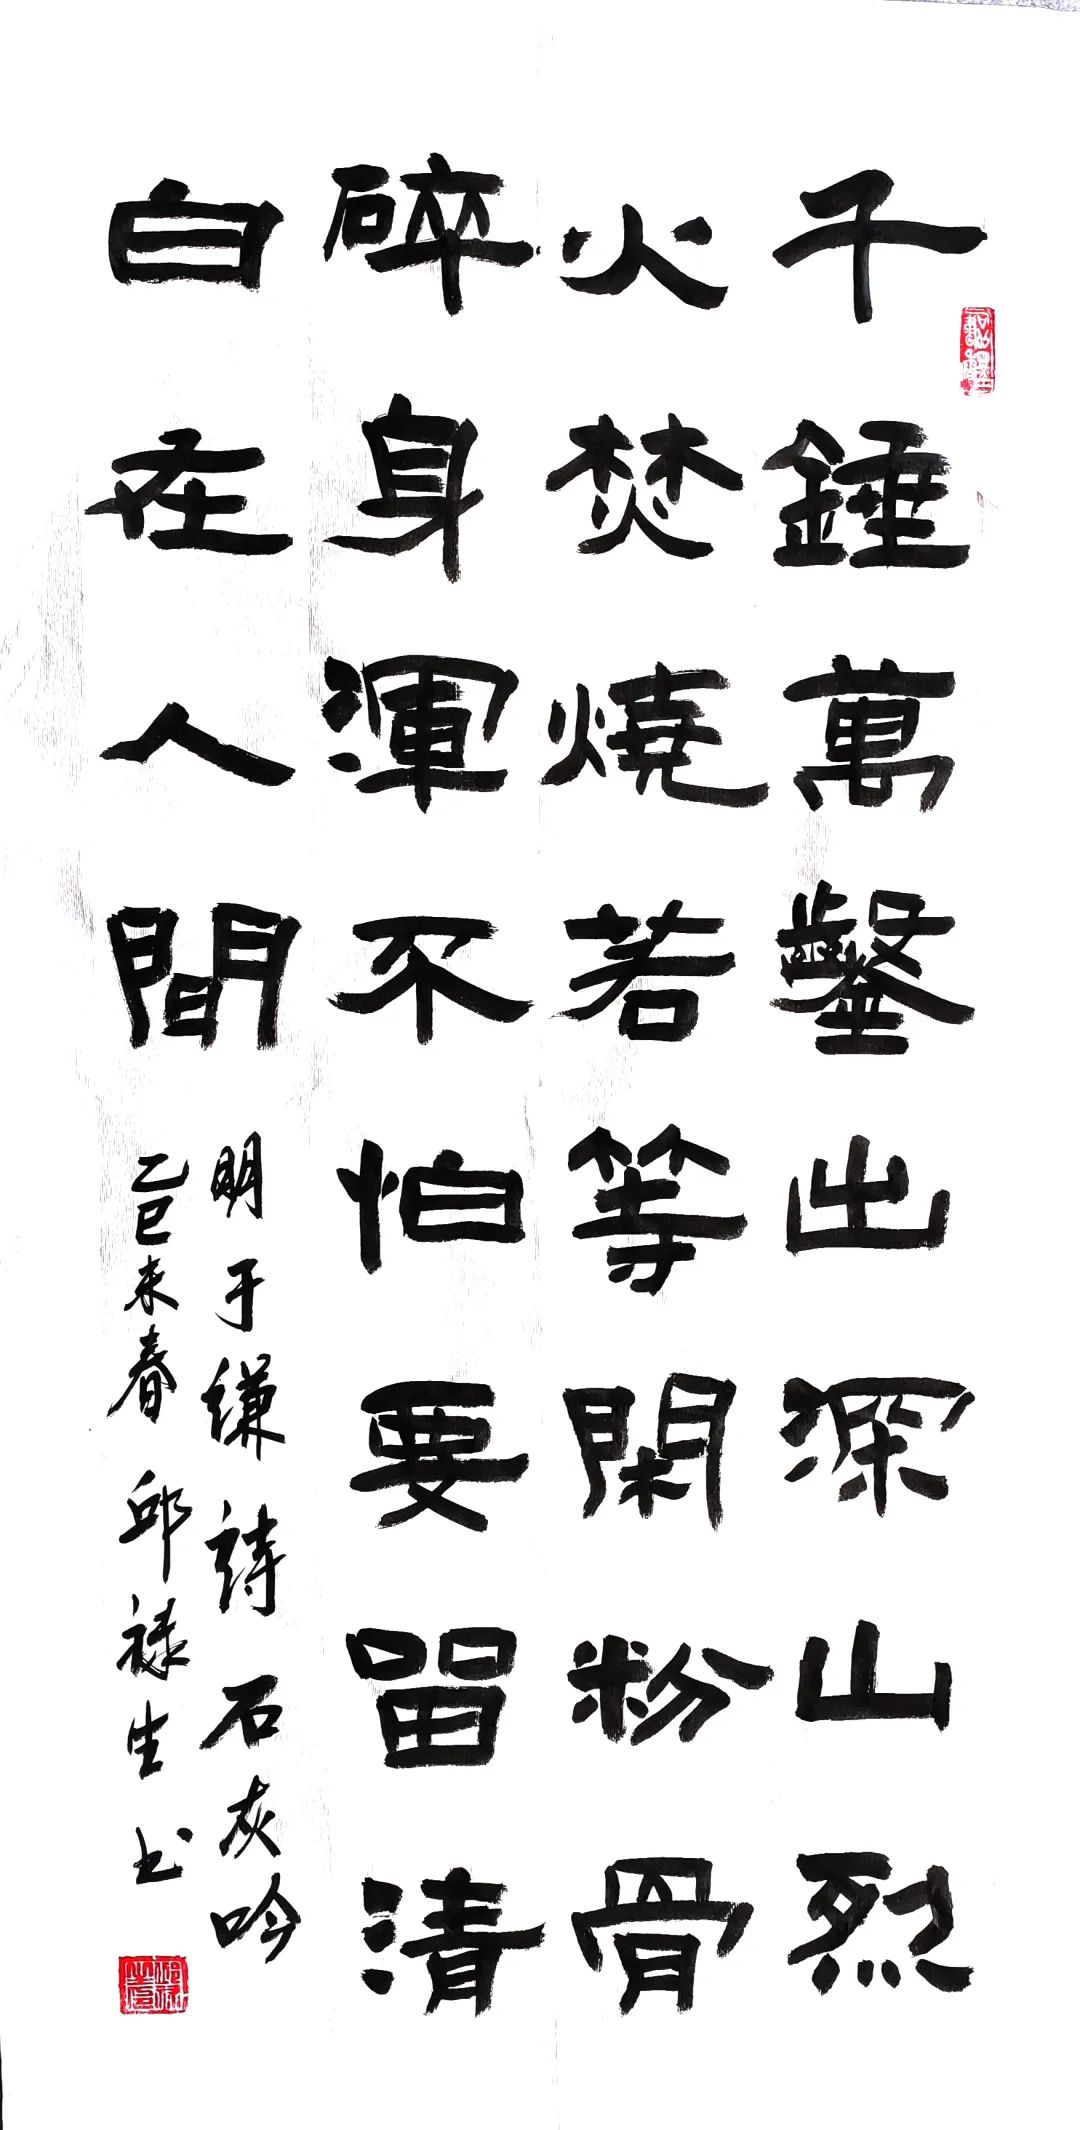 千錘萬鑿出深山烈
火焚燒若等閑粉骨
碎身渾不怕要留清
白在人間
明于謙詩石灰吟
乙巳末春邱禄生书